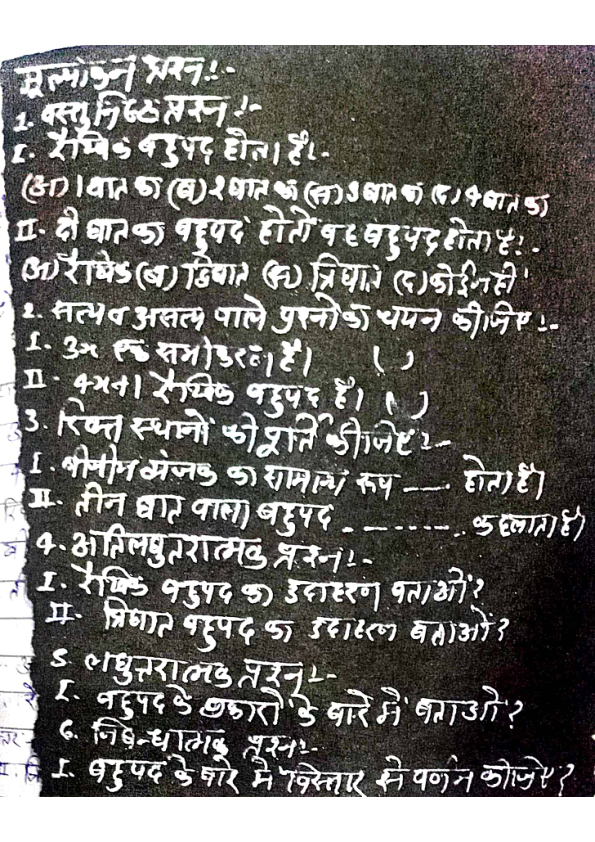 मूल्यांकन प्रश्न:-
1. वस्तुनिष्ठ प्रश्न:-
I. रैखिक बहुपद होता है:-
(अ) 1 घात का (ब) 2 घात का (स) 3 घात का (द) 4 घात का
II. दो घात का बहुपद होतो वह बहुपद होता है:-
(अ) रैखिक (ब) द्विघात (स) त्रिघात (द) कोई नहीं
2. सत्य व असत्य वाले प्रश्नो का चयन कीजिए:-
I. 3x एक समीकरण है। ( )
II. 4x+1 रैखिक बहुपद है। ( )
3. रिक्त स्थानों की पूर्ति कीजिए:-
I. बीजीय व्यंजक का सामान्य रूप ---- होता है।
II. तीन घात वाला बहुपद -------- कहलाता है।
4. अतिलघुतरात्मक प्रश्न:-
I. रैखिक बहुपद का उदाहरण बताओं?
II. त्रिघात बहुपद का उदाहरण बताओं?
5. लघुतरात्मक प्रश्न:-
I. बहुपद के प्रकारों के बारे में बताओ?
6. निबन्धात्मक प्रश्न:-
I. बहुपद के बारे में विस्तार से वर्णन कीजिए?